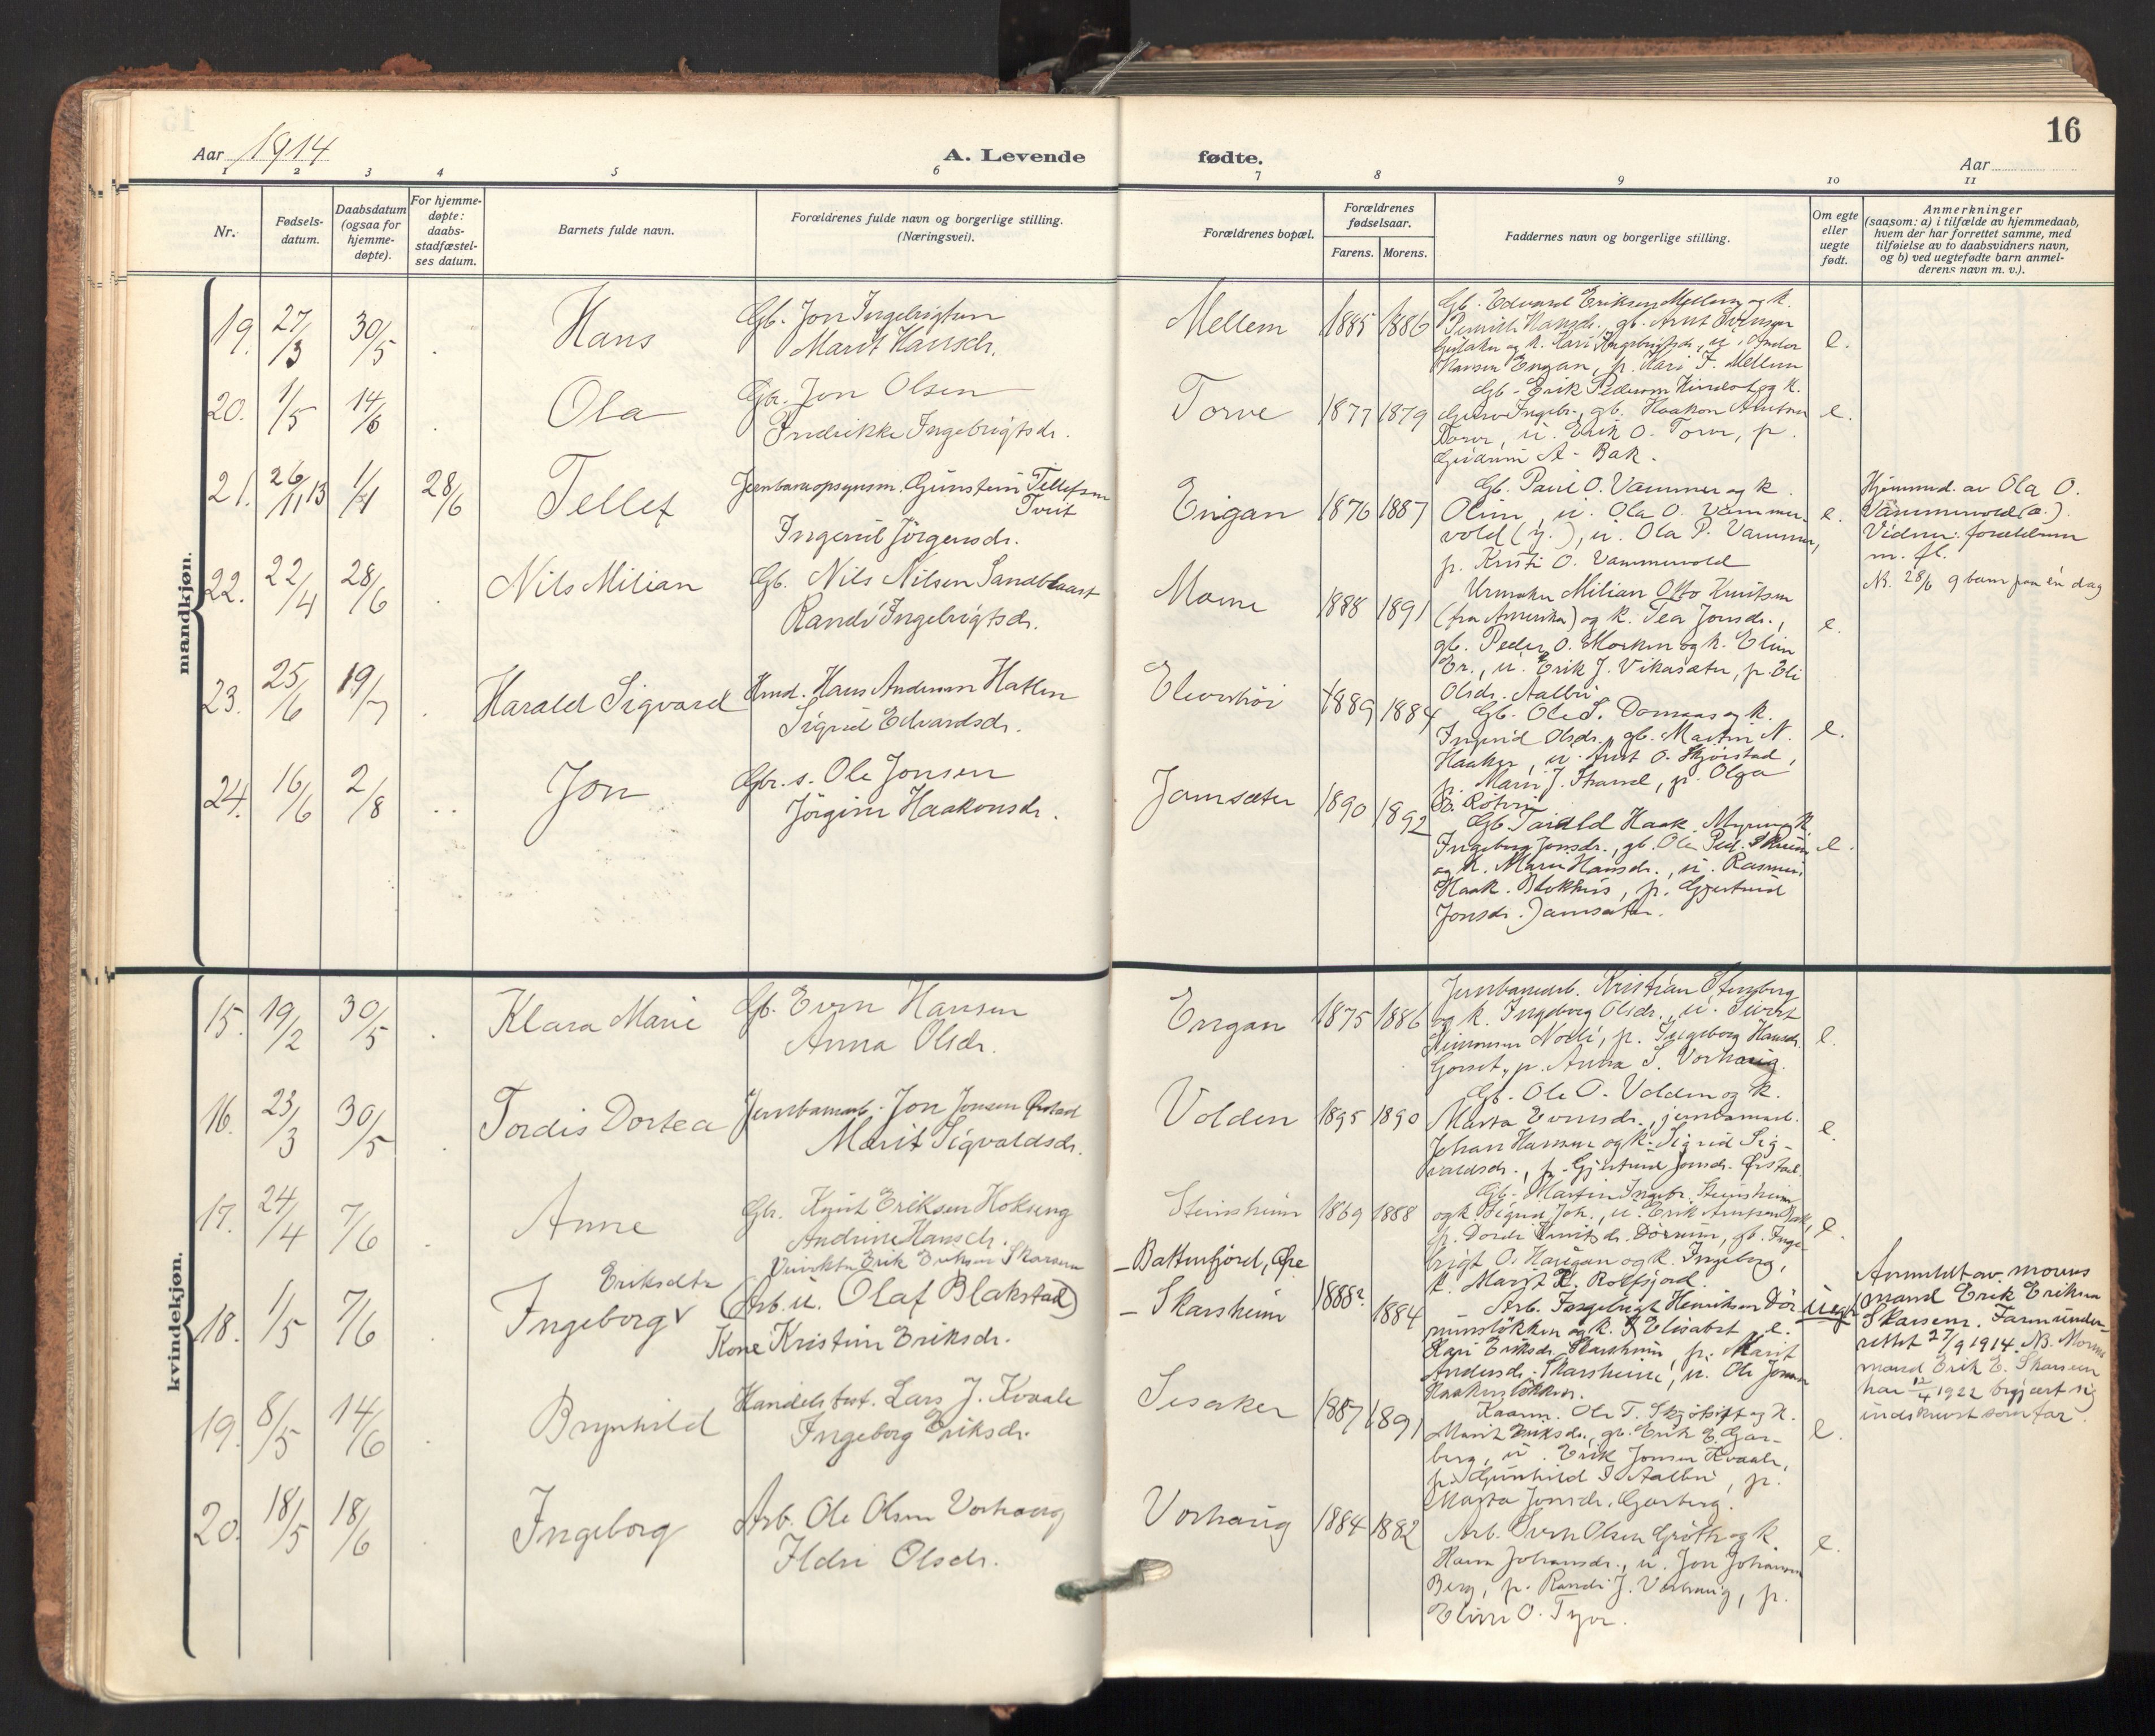 16
Aar 1914
A. Levende
fødte.
Aar
1 2 3 4 5 6 7 8 9 10 11
Nr.
Fødsels-
datum.
Daabsdatum
(ogsaa for
hjemme-
døpte).
For hjemme-
døpte:
daabs-
stadfæstel-
ses datum.
Barnets fulde navn.
Forældrenes fulde navn og borgerlige stilling.
(Næringsvei).
Forældrenes bopæl.
Forældrenes
fødselsaar.
Farens. Morens.
Faddernes navn og borgerlige stilling.
Om egte
eller
uegte
født.
Anmerkninger
(saasom: a) i tilfælde av hjemmedaab,
hvem der har forrettet samme, med
tilføielse av to daabsvidners navn,
og b) ved uegtefødte barn anmel-
derens navn m. v.).
mandkjøn.
19. 27/3 30/5 . Hans
Gb. Jon Ingebrigtsen
Marit Hansdr.
Mellem 1885 1886
Gb. Edvard Eriksen Mellem og k.
Hansdr., gb. Arnt
og k. Kari Ingebrigtsdr., u.
Hansen Engan, p. Kari J. Mellem
e.
20. 1/5 14/6 . Ola
Gbr. Jon Olsen
Fredrikke Ingebrigtsdr.
Torve 1877 1879
Gb. Erik Pedersen og k.
Ingebr., gb. Haakon Arntsen
Torve, u. Erik O. Torve, p.
Gudrun A. Bak.
e.
21. 26/11 13 1/1 28/6 Tellef
Jernbaneopsynsm. Gunstein Tellefsen
Tveit
Ingerid Jörgensdr.
Engan 1876 1887
Gb. Paul O. Vammer og k.
Oline, u. Ola O. Vammer-
vold (y.), u. Ola P. Vammer,
p. Kristi O. Vammervold
e.
Hjemmed. av Ola O.
Vammervold (e.).
Vidner: forældrene
m. fl.
22. 22/4 28/6 . Nils Milian
Gb. Nils Nilsen Sandblaast
Randi Ingebrigtsdr.
Moene 1888 1891
Urmaker Milian Otto Knutsen
(fra Amerika) og k. Tea Jonsdr.,
gb. Peder O. Morken og k. Elen
Er., u. Erik J. Vikasæter, p. Eli
Olsdr. Aalbu
e.
NB. 28/6 9 barn paa én dag
23. 25/6 19/7 . Harald Sigvard
Hmd. Hans Andersen Hatlen
Sigrid Edvardsdr.
Elverhöi 1889 1884
Gb. Ole S. Domaas og k.
Ingerid Olsdr., gb. Martin N.
Haaker, u. Arnt O. Skjörstad,
p. Mari J. Strand, p. Olga
e.
24. 16/6 2/8 .. Jon
Gbr. s. Ole Jonsen
Jörgine Haakonsdr.
Jamsæter 1890 1892
Gb. Tarald Haak. og k.
Ingeborg Jonsdr., gb. Ole Ped.
og k. Maren Hansdr., u. Rasmus
Haak. Blokhus, p. Gjertrud
Jonsdr. Jamsæter.
e.
kvindekjøn.
15. 19/2 30/5 . Klara Marie
Gb. Even Hansen
Anna Olsdr.
Engan 1875 1886
Jernbanearb. Kristian Stensberg
og k. Ingeborg Olsdr., u. Sivert
Simonsen Norli, p. Ingeborg Hansdr.
Gorset, p. Anna S. Vorhaug.
e.
16. 23/3 30/5 . Tordis Dortea
Jernbanearb. Jon Jonsen Örstad
Marit Sigvaldsdr.
Volden 1895 1890
Gb. Ole O. Volden og k.
Marta Evensdr., jernbanearb.
Johan Hansen og k. Sigrid Sig-
valdsdr., p. Gjertrud Jonsdr. Örstad
e.
17. 24/4 7/6 . Anne
Gb. Knut Eriksen Hokseng
Andrine Hansdr.
Steinsheim 1869 1888
Gb. Martin Ingebr. Steinsheim
og k. Sigrid Joh., u. Erik Arntsen Bak,
p. Dordi Knutsdr. Dörum, gb. Inge-
brigt O. Haugan og k. Ingeborg,
k. Marit Rolfsjord.
e.
18. 1/5 7/6 . Eriksdtr
Ingeborg v
Erik Eriksen Skarsem
(Arb. u. Olaf Blakstad)
Kone Kristine Eriksdr.
– Battenfjord, Öre
– Skarsheim
1888? 1884
Arb. Ingebrigt Henriksen Dör-
rumslökken og k. Elisabet, e.
Kari Eriksdr. Skarsheim, p. Marit
Andersdr. Skarsheim, u. Ole Jonsen
Haakenslökken.
uegte
Anmeldt av morens
mand Erik Eriksen
Skarsem. Faren under-
rettet 27/9 1914. NB. Morens
mand Erik E. Skarsem
har 12/4 1922 begjært sig
indskrevet som far.
19. 8/5 14/6 . Brynhild
Handelsbest. Lars J. Kvaale
Ingeborg Eriksdr.
Sesaker 1887 1891
Kaarm. Ole T. Skjötskift og k.
Marit Eriksdr., gb. Erik E. Gar-
berg, u. Erik Jonsen Kvaale,
p. Gunhild I. Aalbu, p.
Marta Jonsdr. Garberg.
e.
20. 18/5 18/6 . Ingeborg
Arb. Ole Olsen Vorhaug
Ildri Olsdr.
Vorhaug 1884 1882
Arb. Sven Olsen Gröthe og k.
Hanna Johansdr., u. Jon Johansen
Berg, p. Randi J. Vorhaug, p.
Eline O. Tyve.
e.